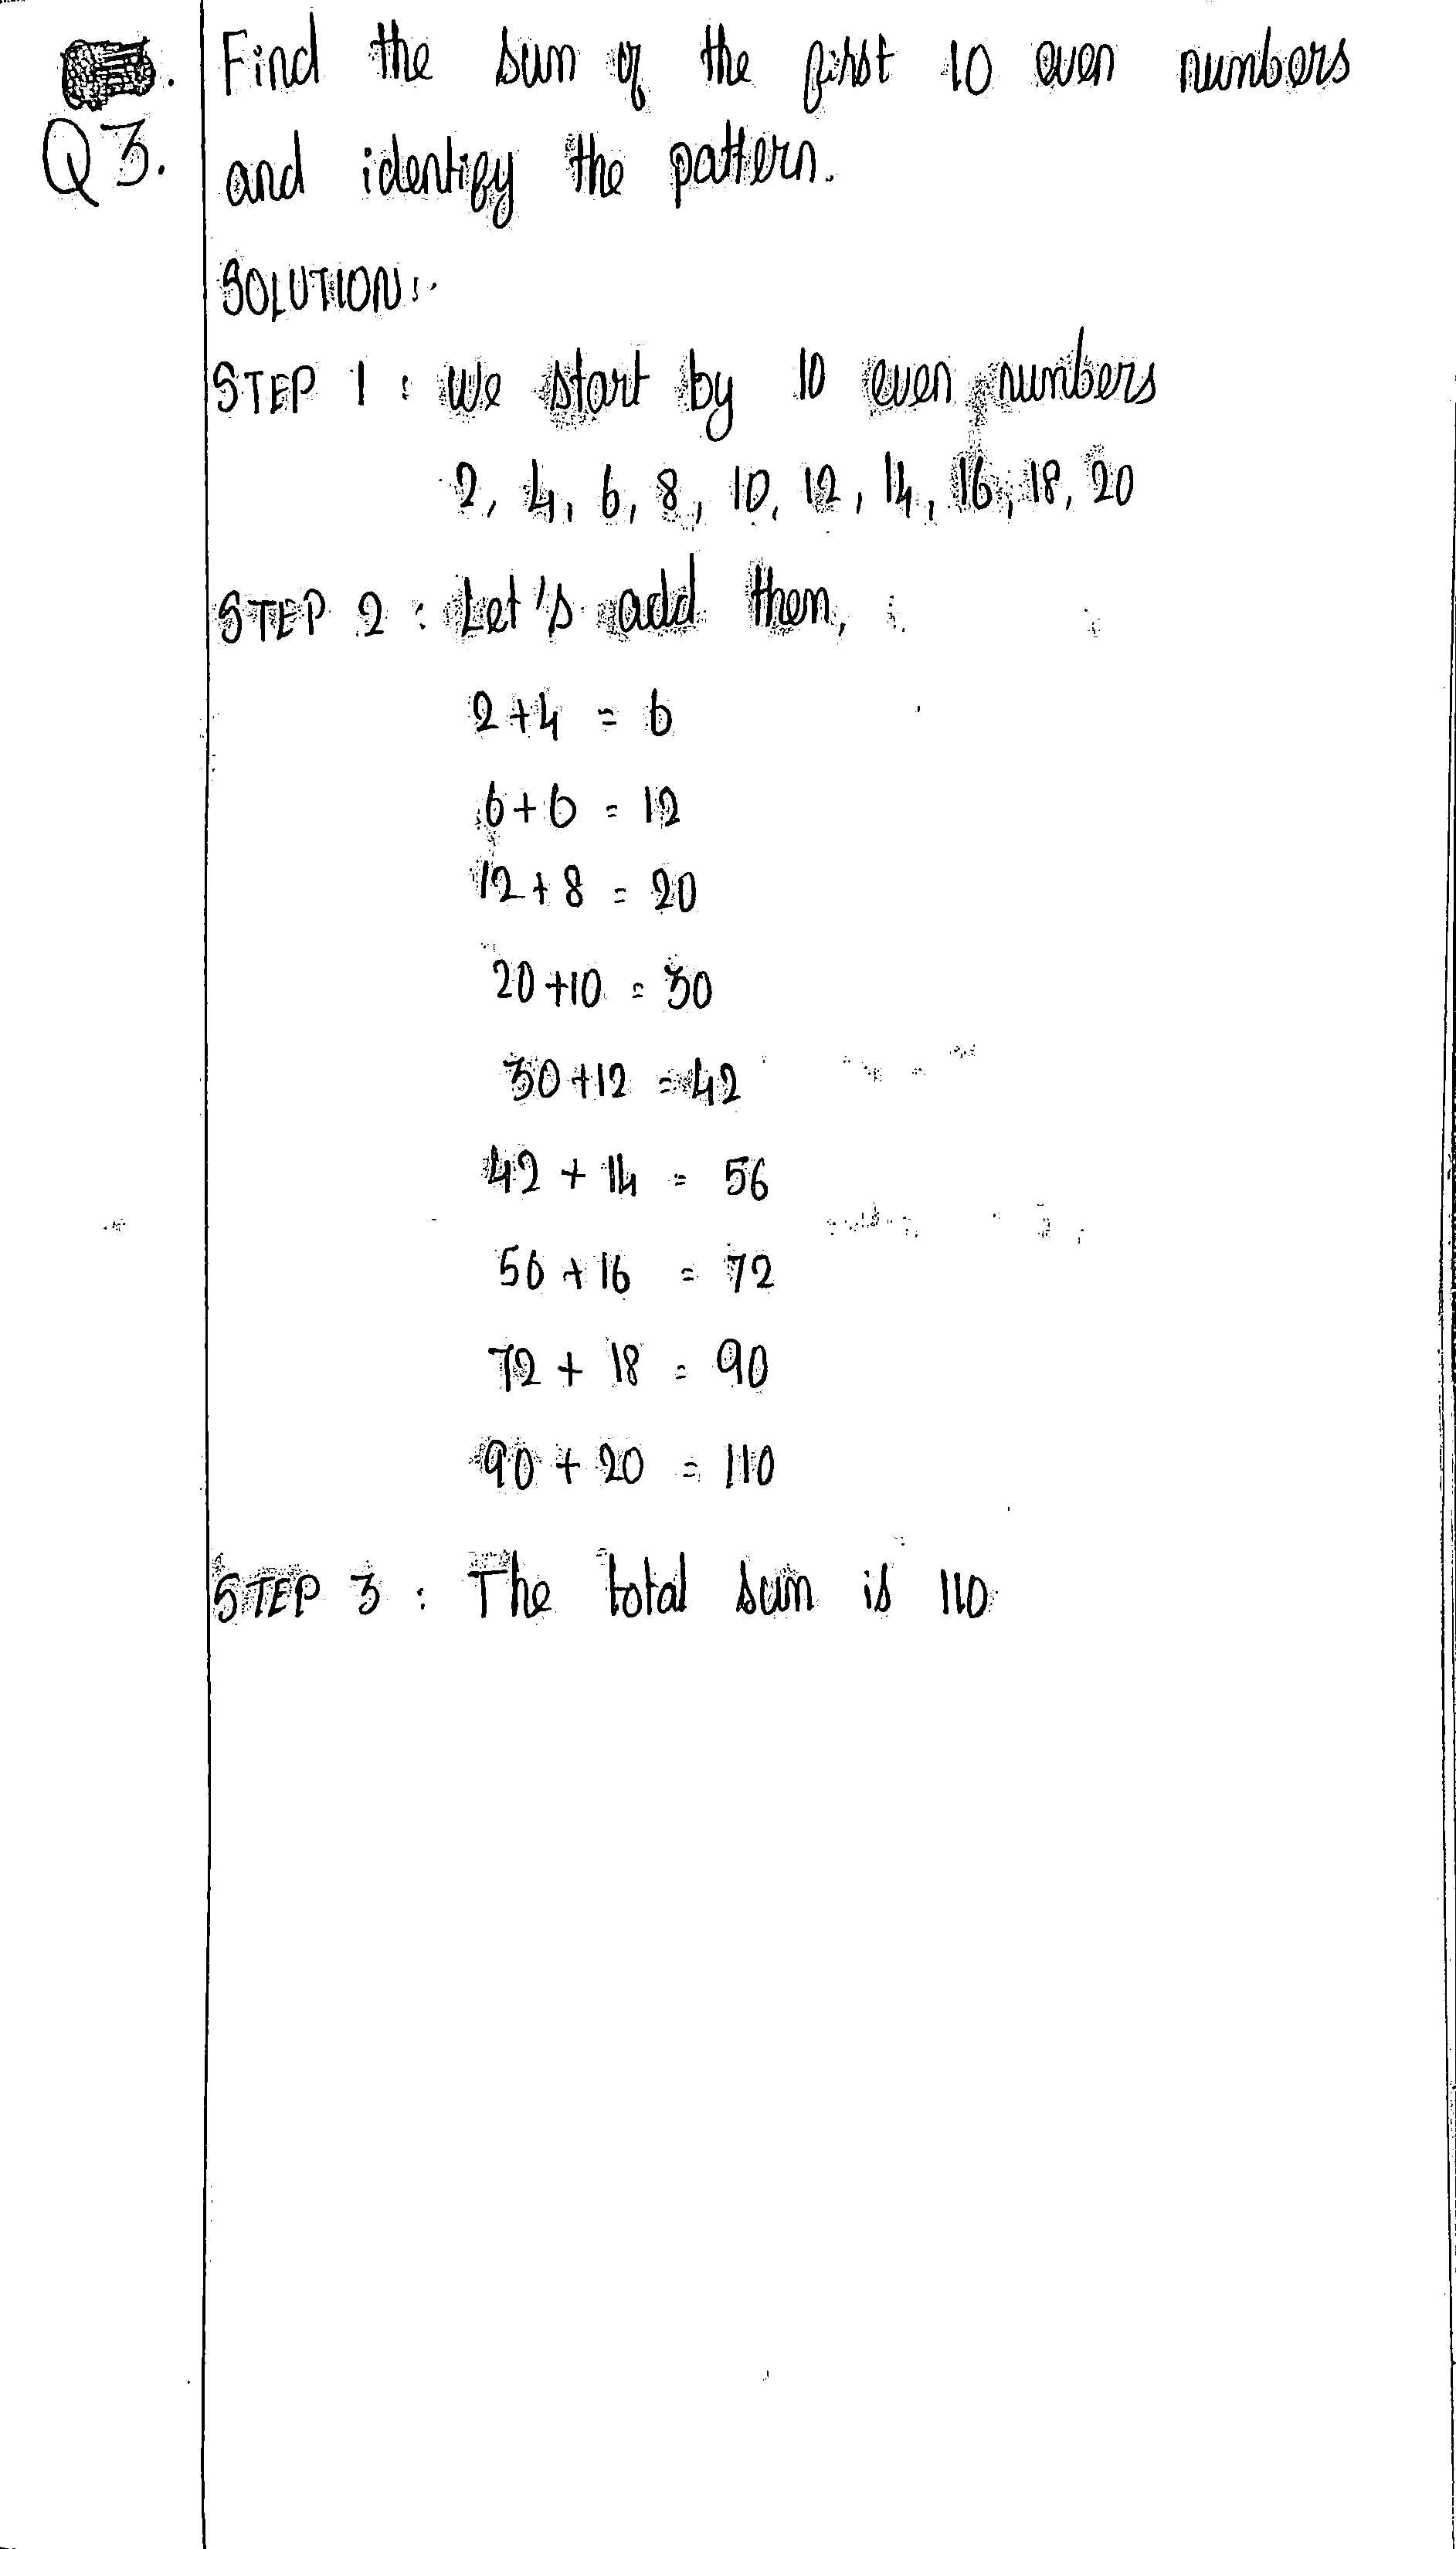 Find the sum of the first 10 even numbers
Q3. and identify the pattern.
SOLUTION:-
STEP 1 : We start by 10 even numbers
2, 4, 6, 8, 10, 12, 14, 16, 18, 20
STEP 2 : Let's add them,
2+4 = 6
6+6 = 12
12+8 = 20
20+10 = 30
30+12 = 42
42 + 14 = 56
56 + 16 = 72
72 + 18 = 90
90 + 20 = 110
STEP 3 : The total sum is 110